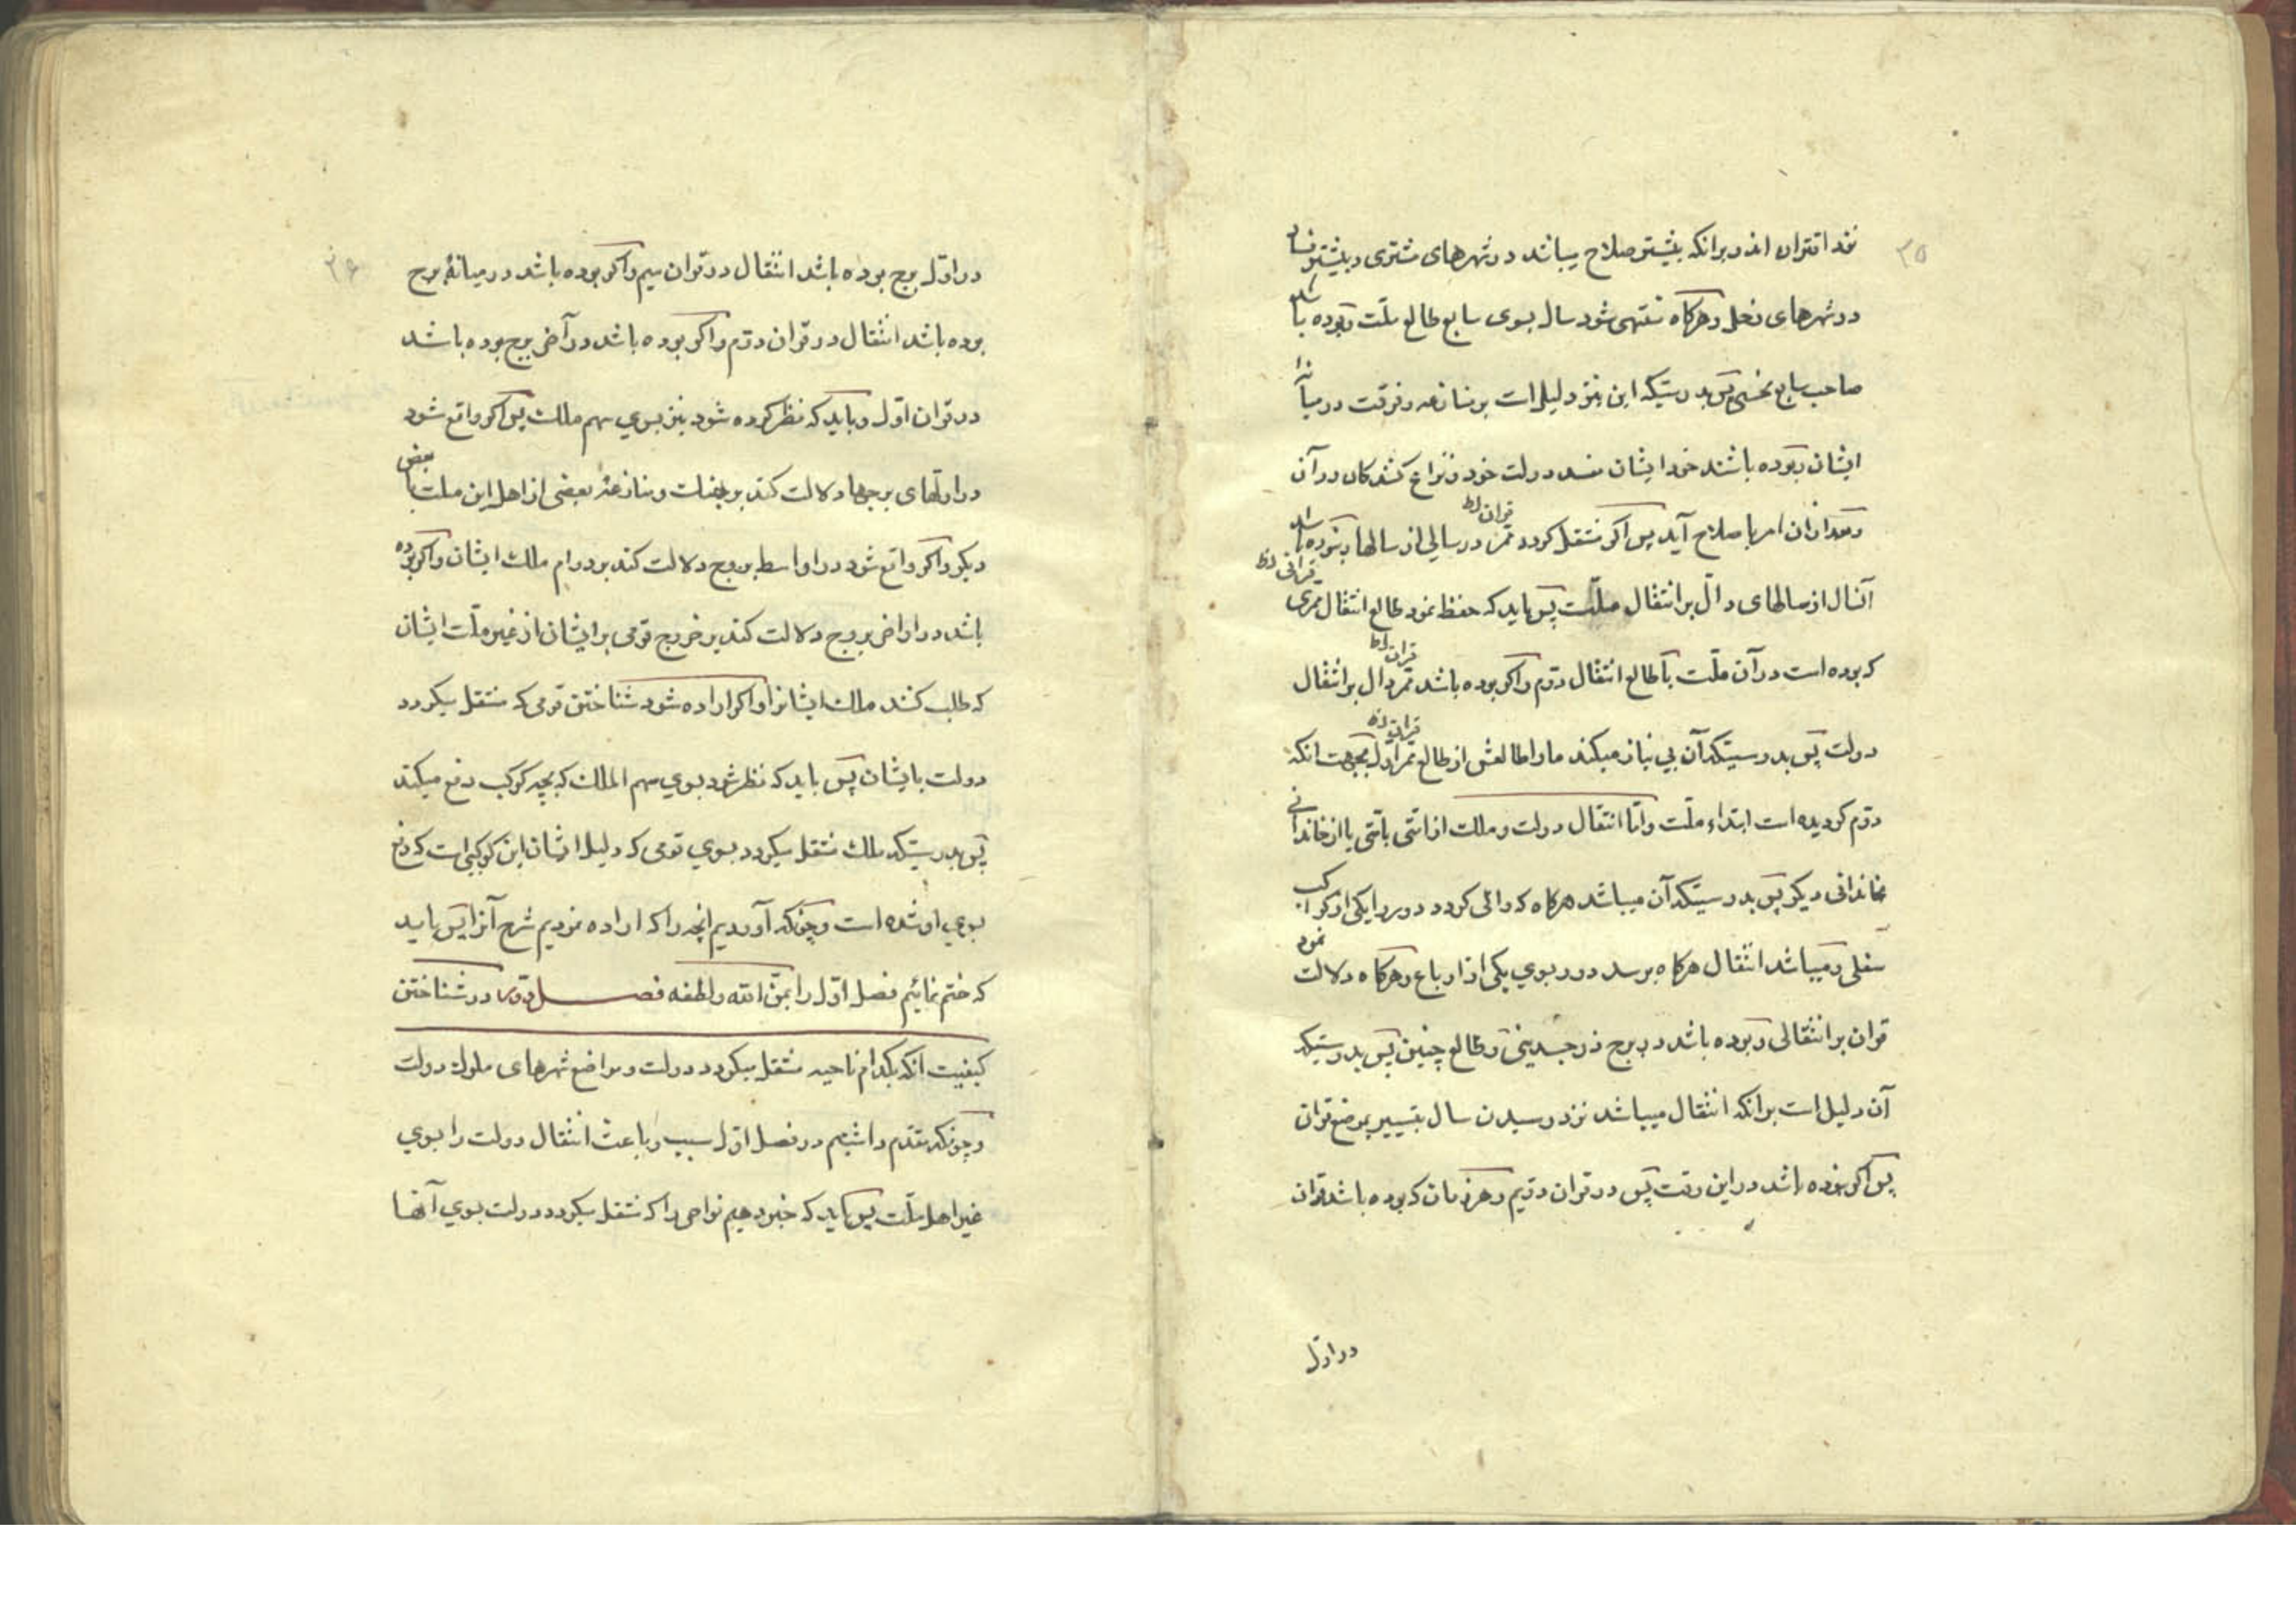 ۳۵
نزد اقتران اند و برانکه بیشتر صلاح میباشد در شهرهای مشتری و بیشتر فساد
در شهرهای زحل و هرکاه منتهی شود سال بسوی سابع طالع ملت و بوده باشد
صاحب سابع نحسی پس بدرستیکه این نیز دلیل است بر منازعه و فرقت در میانه
ایشان و بوده باشند خود ایشان مفسد دولت خود و نزاع کنندکان در آن
و بعد از آن امر باصلاح آید پس اکر منتقل کردد ممر در سالی از سالها و بوده باشد
قران ظ
آنسال از سالهای دال بر انتقال ملت پس باید که حفظ نمود طالع انتقال ممری
قرانی ظ
که بوده است در آن ملت با طالع انتقال دوم و اکر بوده باشد ممر دال بر انتقال
قران ظ
دولت پس بدرستیکه آن بی نیاز میکند ما را طالعش از طالع ممر اول بجهت انکه
قران ظ
دوم کردیده است ابتداء ملت و اما انتقال دولت و ملک از امتی بامتی یا از خاندانی
بخاندانی دیکر پس بدرستیکه آن میباشد هرکاه که والی کردد دور را یکی از کواکب
سفلی و میباشد انتقال هرکاه برسد دور بسوی یکی از ارباع و هرکاه دلالت نمود
قران بر انتقالی و بوده باشد در برج ذو جسدینی و طالع چنین پس بدرستیکه
آن دلیل است برانکه انتقال میباشد نزد رسیدن سال بتسییر بموضع قران
پس اکر بوده باشد در این وقت پس در قران دویم و هر زمان که بوده باشد قران
در اول
۳۶
در اول برج بوده باشد انتقال در قران سیم و اکر بوده باشد در میانهٔ برج
بوده باشد انتقال در قران دوم و اکر بوده باشد در آخر برج بوده باشد
در قران اول و باید که نظر کرده شود نیز بسوی سهم ملک پس اکر واقع شود
در اولهای برجها دلالت کند بر و منازعه بعضی از اهل این ملت با بعض
دیکر و اکر واقع شود در اواسط بروج دلالت کند بر دوام ملک ایشان و اکر بوده
باشد در اواخر بروج دلالت کند بر خروج قومی بر ایشان از غیر ملت ایشان
که طلب کنند ملک ایشانرا و اکر اراده شود شناختن قومی که منتقل میکردد
دولت بایشان پس باید که نظر شود بسوی سهم الملک که بچه کوکب دفع میکند
پس بدرستیکه ملک منتقل میکردد بسوی قومی که دلیل ایشان این کوکبی است که دفع
بسوی او شده است و چونکه آوردیم انچه را که اراده نمودیم شرح آنرا پس باید
که ختم نمائیم فصل اول را بمن الله و لطفه فصل دوم در شناختن
کیفیت انکه بکدام ناحیه منتقل میکردد دولت و مواضع شهرهای ملوک دولت
و چونکه مقدم داشتیم در فصل اول سبب و باعث انتقال دولت را بسوی
غیر اهل ملت پس باید که خبر دهیم نواحی را که منتقل میکردد دولت بسوی آنها